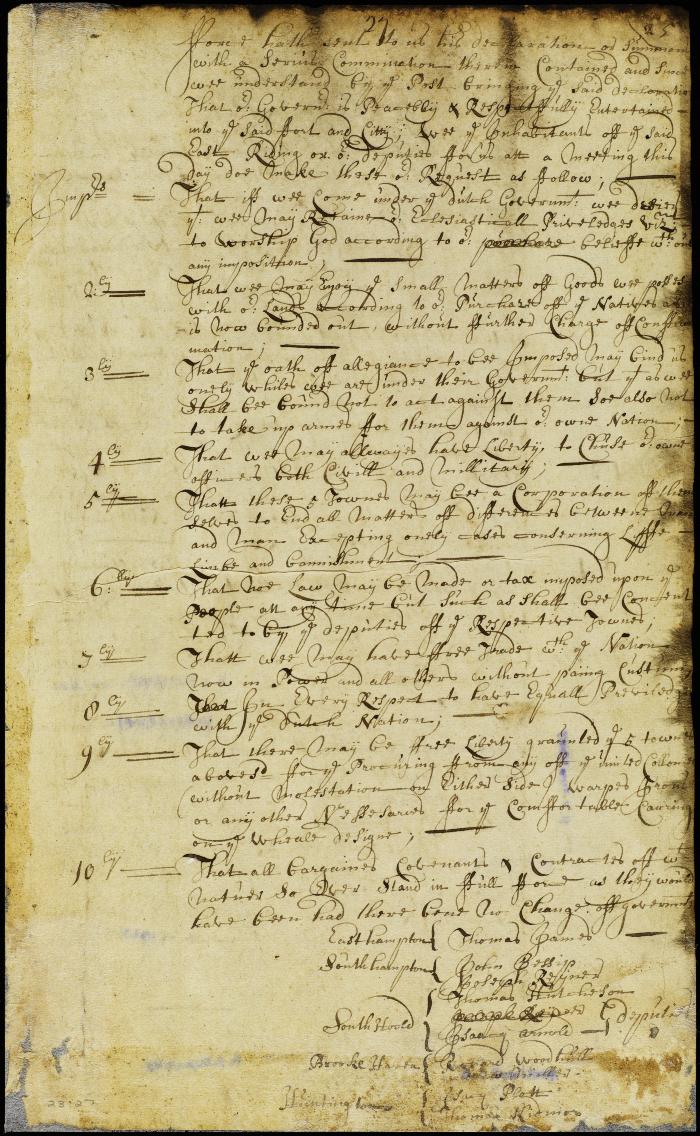 27
25
fforce hath sent to us his declaration or Summons
with a Serius Commination therein Contained and Since
wee understand by ye Post bringing ye said declaration
That or: Governr: is Peacebly & Respectfully Entertained
into ye said ffort and Citty; wee ye Inhabitants off ye said
East Riding or or: deputies ffor us att a Meeting this
day doe make these or: Request as ffollow;
Imprs That iff wee Come under ye dutch Governmt: wee desier
yt wee may Retaine or: Eclesiasticall Priveledges viz:
to worship God according to or: beliefe wth: out
any imposition;
2:ly That wee may Enjoy ye Small matters off Goods wee posses
with or: Lands according to or: Purchase off ye Natives as it
is now bounded out, without ffurther Charge off Confir
mation;
3ly That ye oath off allegiance to bee Imposed may bind us
onely while wee are under their Governmt: but yt as wee
Shall bee bound not to act against them Soe also not
to take up armes ffor them against or: owne Nation;
4ly That wee may allwayes have Liberty to Chuse or: owne
officers both Civill and Millitary;
5ly Thatt these 5 Townes may bee a Corporation off them
selves to End all Matters off differences betweene man
and man Excepting onely Cases conserning Liffe
Limbe and bannishment;
6:ly That noe Law may be made or tax imposed upon ye
People att any time but Such as shall bee Concent
ted to by ye deputies off ye Respective Townes;
7ly Thatt wee may have ffree Trade wth: ye Nation
now in Power and all others without paing Custome
8ly In Every Respect to have Equall Previledg
with ye dutch Nation;
9ly That there may be ffree Liberty graunted ye 5 townes
abovesd ffor ye Procuring ffrom any off ye united Collonies
(without molestation on Either Side) warpes Irons
or any other Nessesaries ffor ye Comffortable Carring
on ye Wheale designe;
10ly That all bargaines Covenants & Contractes off wt
natuer So Ever Stand in ffull fforce as they would
have been had there bene no Change off government
Easthampton { Thomas James
Southampton { John Jessip
Joseph Reyner
Thomas Hutcheson
South hoold { Isaac Arnold } deputies
Brooke Haven { Richard Woodhull
Huntington { Isaac Platt
Thomas Kidmor
23-27